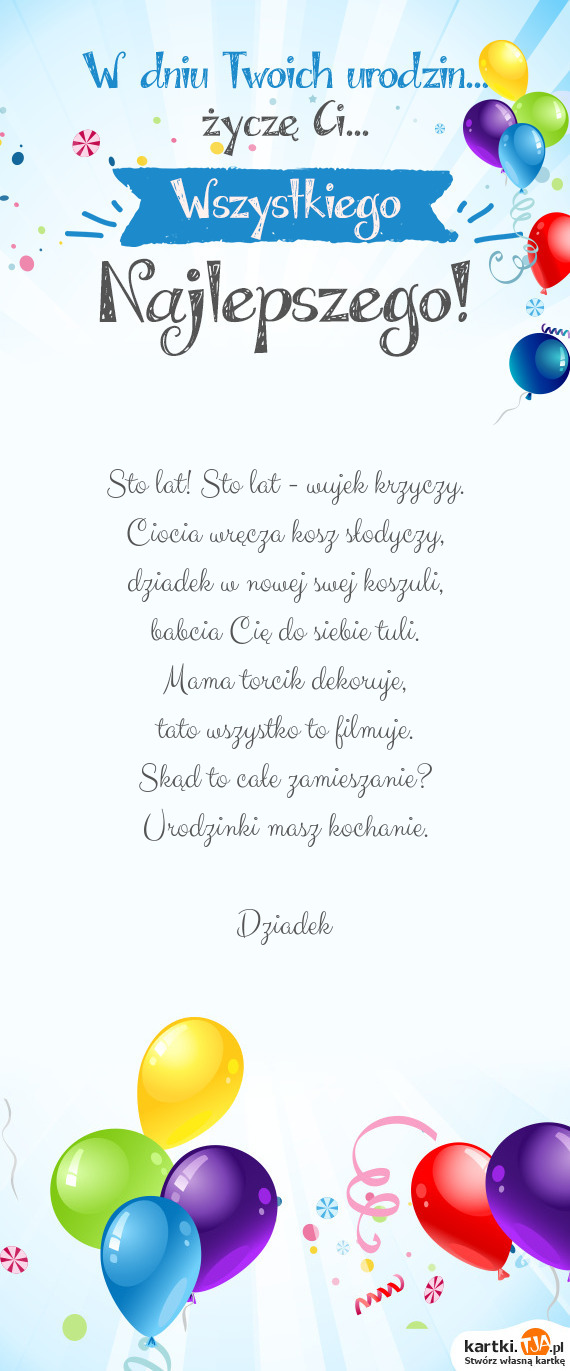 W dniu Twoich urodzin...
życzę Ci...
Wszystkiego
Najlepszego!
Sto lat! Sto lat - wujek krzyczy.
Ciocia wręcza kosz słodyczy,
dziadek w nowej swej koszuli,
babcia Cię do siebie tuli.
Mama torcik dekoruje,
tato wszystko to filmuje.
Skąd to całe zamieszanie?
Urodzinki masz kochanie.
Dziadek
kartki.TJA.pl
Stwórz własną kartkę